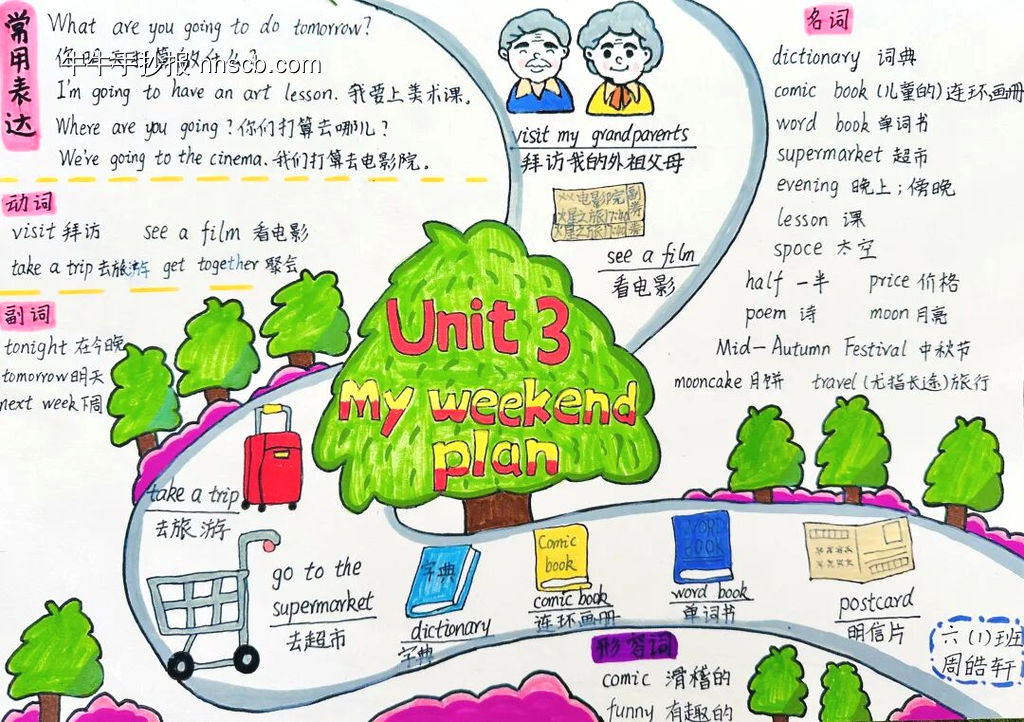 常用表达
What are you going to do tomorrow?
牛牛手抄报 nnscb.com
I'm going to have an art lesson. 我爱上美术课。
Where are you going? 你们打算去哪儿?
We're going to the cinema. 我们打算去电影院。
动词
visit 拜访 see a film 看电影
take a trip 去旅游 get together 聚会
副词
tonight 在今晚
tomorrow 明天
next week 下周
visit my grandparents
拜访我的外祖父母
××电影院
火星之旅
火星之旅
副券
see a film
看电影
名词
dictionary 词典
comic book (儿童的)连环画册
word book 单词书
supermarket 超市
evening 晚上;傍晚
lesson 课
spoce 太空
half 一半 price 价格
poem 诗 moon 月亮
Mid-Autumn Festival 中秋节
mooncake 月饼 travel (尤指长途)旅行
Unit 3
My weekend
plan
take a trip
去旅游
go to the
supermarket
去超市
字典
dictionary
字典
Comic
book
comic book
连环画册
WORD
BOOK
word book
单词书
postcard
明信片
形容词
comic 滑稽的
funny 有趣的
六(1)班
周皓轩